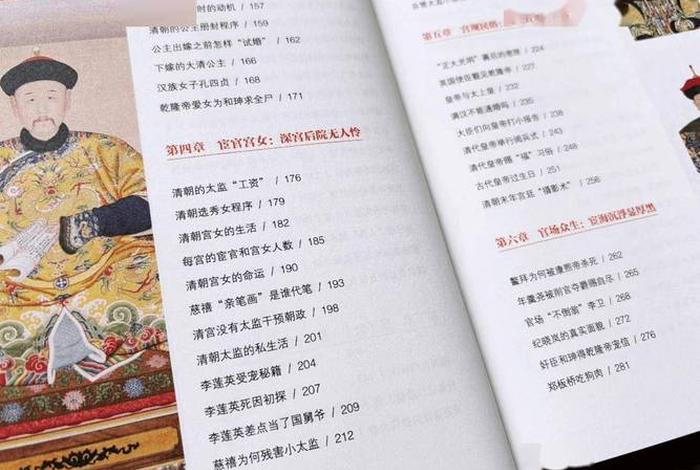 时的动机 / 157
清朝的公主册封程序 / 159
公主出嫁之前怎样“试婚” / 162
下嫁的大清公主 / 166
汉族女子孔四贞 / 168
乾隆帝爱女为和珅求全尸 / 171
第四章 宦官宫女：深宫后院无人怜
清朝的太监“工资” / 176
清朝选秀女程序 / 179
清朝宫女的生活 / 182
每宫的宦官和宫女人数 / 185
清朝宫女的命运 / 190
慈禧“亲笔画”是谁代笔 / 193
清宫没有太监干预朝政 / 198
清朝太监的私生活 / 201
李莲英受宠秘籍 / 204
李莲英死因初探 / 207
李莲英差点当了国舅爷 / 209
慈禧为何残害小太监 / 212
第五章 宫规民俗：
“正大光明”幕后的密隆 / 224
英国使臣觐见乾隆帝 / 227
皇帝与太上皇 / 232
满汉不能通婚吗 / 235
大臣们向皇帝打小报告 / 238
清代皇帝举行阅兵式 / 243
清代皇帝赐“福”习俗 / 248
古代皇帝过生日 / 251
清朝末年宫廷“摄影术” / 256
第六章 官场众生：宦海沉浮显厚黑
鳌拜为何被康熙帝杀死 / 262
年羹尧被削官夺爵赐自尽 / 265
官场“不倒翁”李卫 / 268
纪晓岚的真实面貌 / 272
奸臣和珅得乾隆帝宠信 / 276
郑板桥吃狗肉 / 281